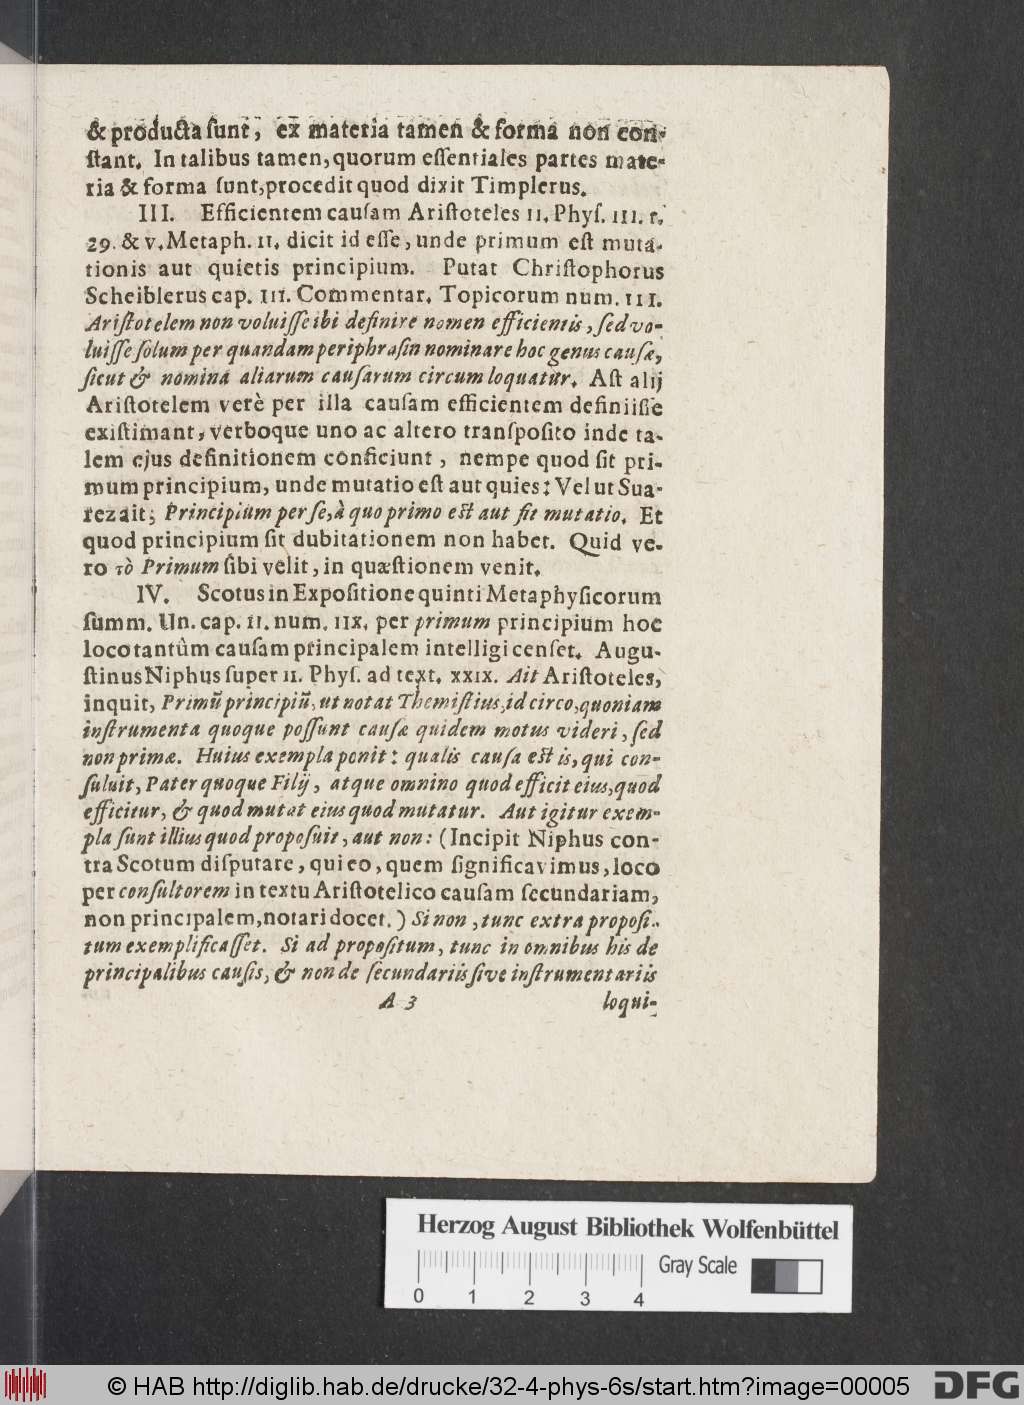 & producta sunt, ex materia tamen & forma non con-
stant. In talibus tamen, quorum essentiales partes mate-
ria & forma sunt, procedit quod dixit Timplerus.
III. Efficientem causam Aristoteles II. Phys. III. t.
29. & V. Metaph. II. dicit id esse, unde primum est muta-
tionis aut quietis principium. Putat Christophorus
Scheiblerus cap. III. Commentar. Topicorum num. III.
Aristotelem non voluisse ibi definire nomen efficientis, sed vo-
luisse solum per quandam periphrasin nominare hoc genus causæ,
sicut & nomina aliarum causarum circumloquatur. Ast alij
Aristotelem verè per illa causam efficientem definiisse
existimant, verboque uno ac altero transposito inde ta-
lem ejus definitionem conficiunt, nempe quod sit pri-
mum principium, unde mutatio est aut quies: Vel ut Sua-
rez ait; Principium per se, à quo primo est aut fit mutatio. Et
quod principium sit dubitationem non habet. Quid ve-
ro τὸ Primum sibi velit, in quæstionem venit.
IV. Scotus in Expositione quinti Metaphysicorum
summ. Un. cap. II. num. IIX. per primum principium hoc
loco tantûm causam principalem intelligi censet. Augu-
stinus Niphus super II. Phys. ad text. XXIX. Ait Aristoteles,
inquit, Primũ principiũ, ut notat Themistius, id circo, quoniam
instrumenta quoque possunt causæ quidem motus videri, sed
non primæ. Huius exempla ponit: qualis causa est is, qui con-
suluit, Pater quoque Filij, atque omnino quod efficit eius, quod
efficitur, & quod mutat eius quod mutatur. Aut igitur exem-
pla sunt illius quod proposuit, aut non: (Incipit Niphus con-
tra Scotum disputare, qui eo, quem significavimus, loco
per consultorem in textu Aristotelico causam secundariam,
non principalem, notari docet.) Si non, tunc extra proposi-
tum exemplificasset. Si ad propositum, tunc in omnibus his de
principalibus causis, & non de secundariis sive instrumentariis
A 3 loqui-
Herzog August Bibliothek Wolfenbüttel
Gray Scale
0 1 2 3 4
© HAB http://diglib.hab.de/drucke/32-4-phys-6s/start.htm?image=00005 DFG